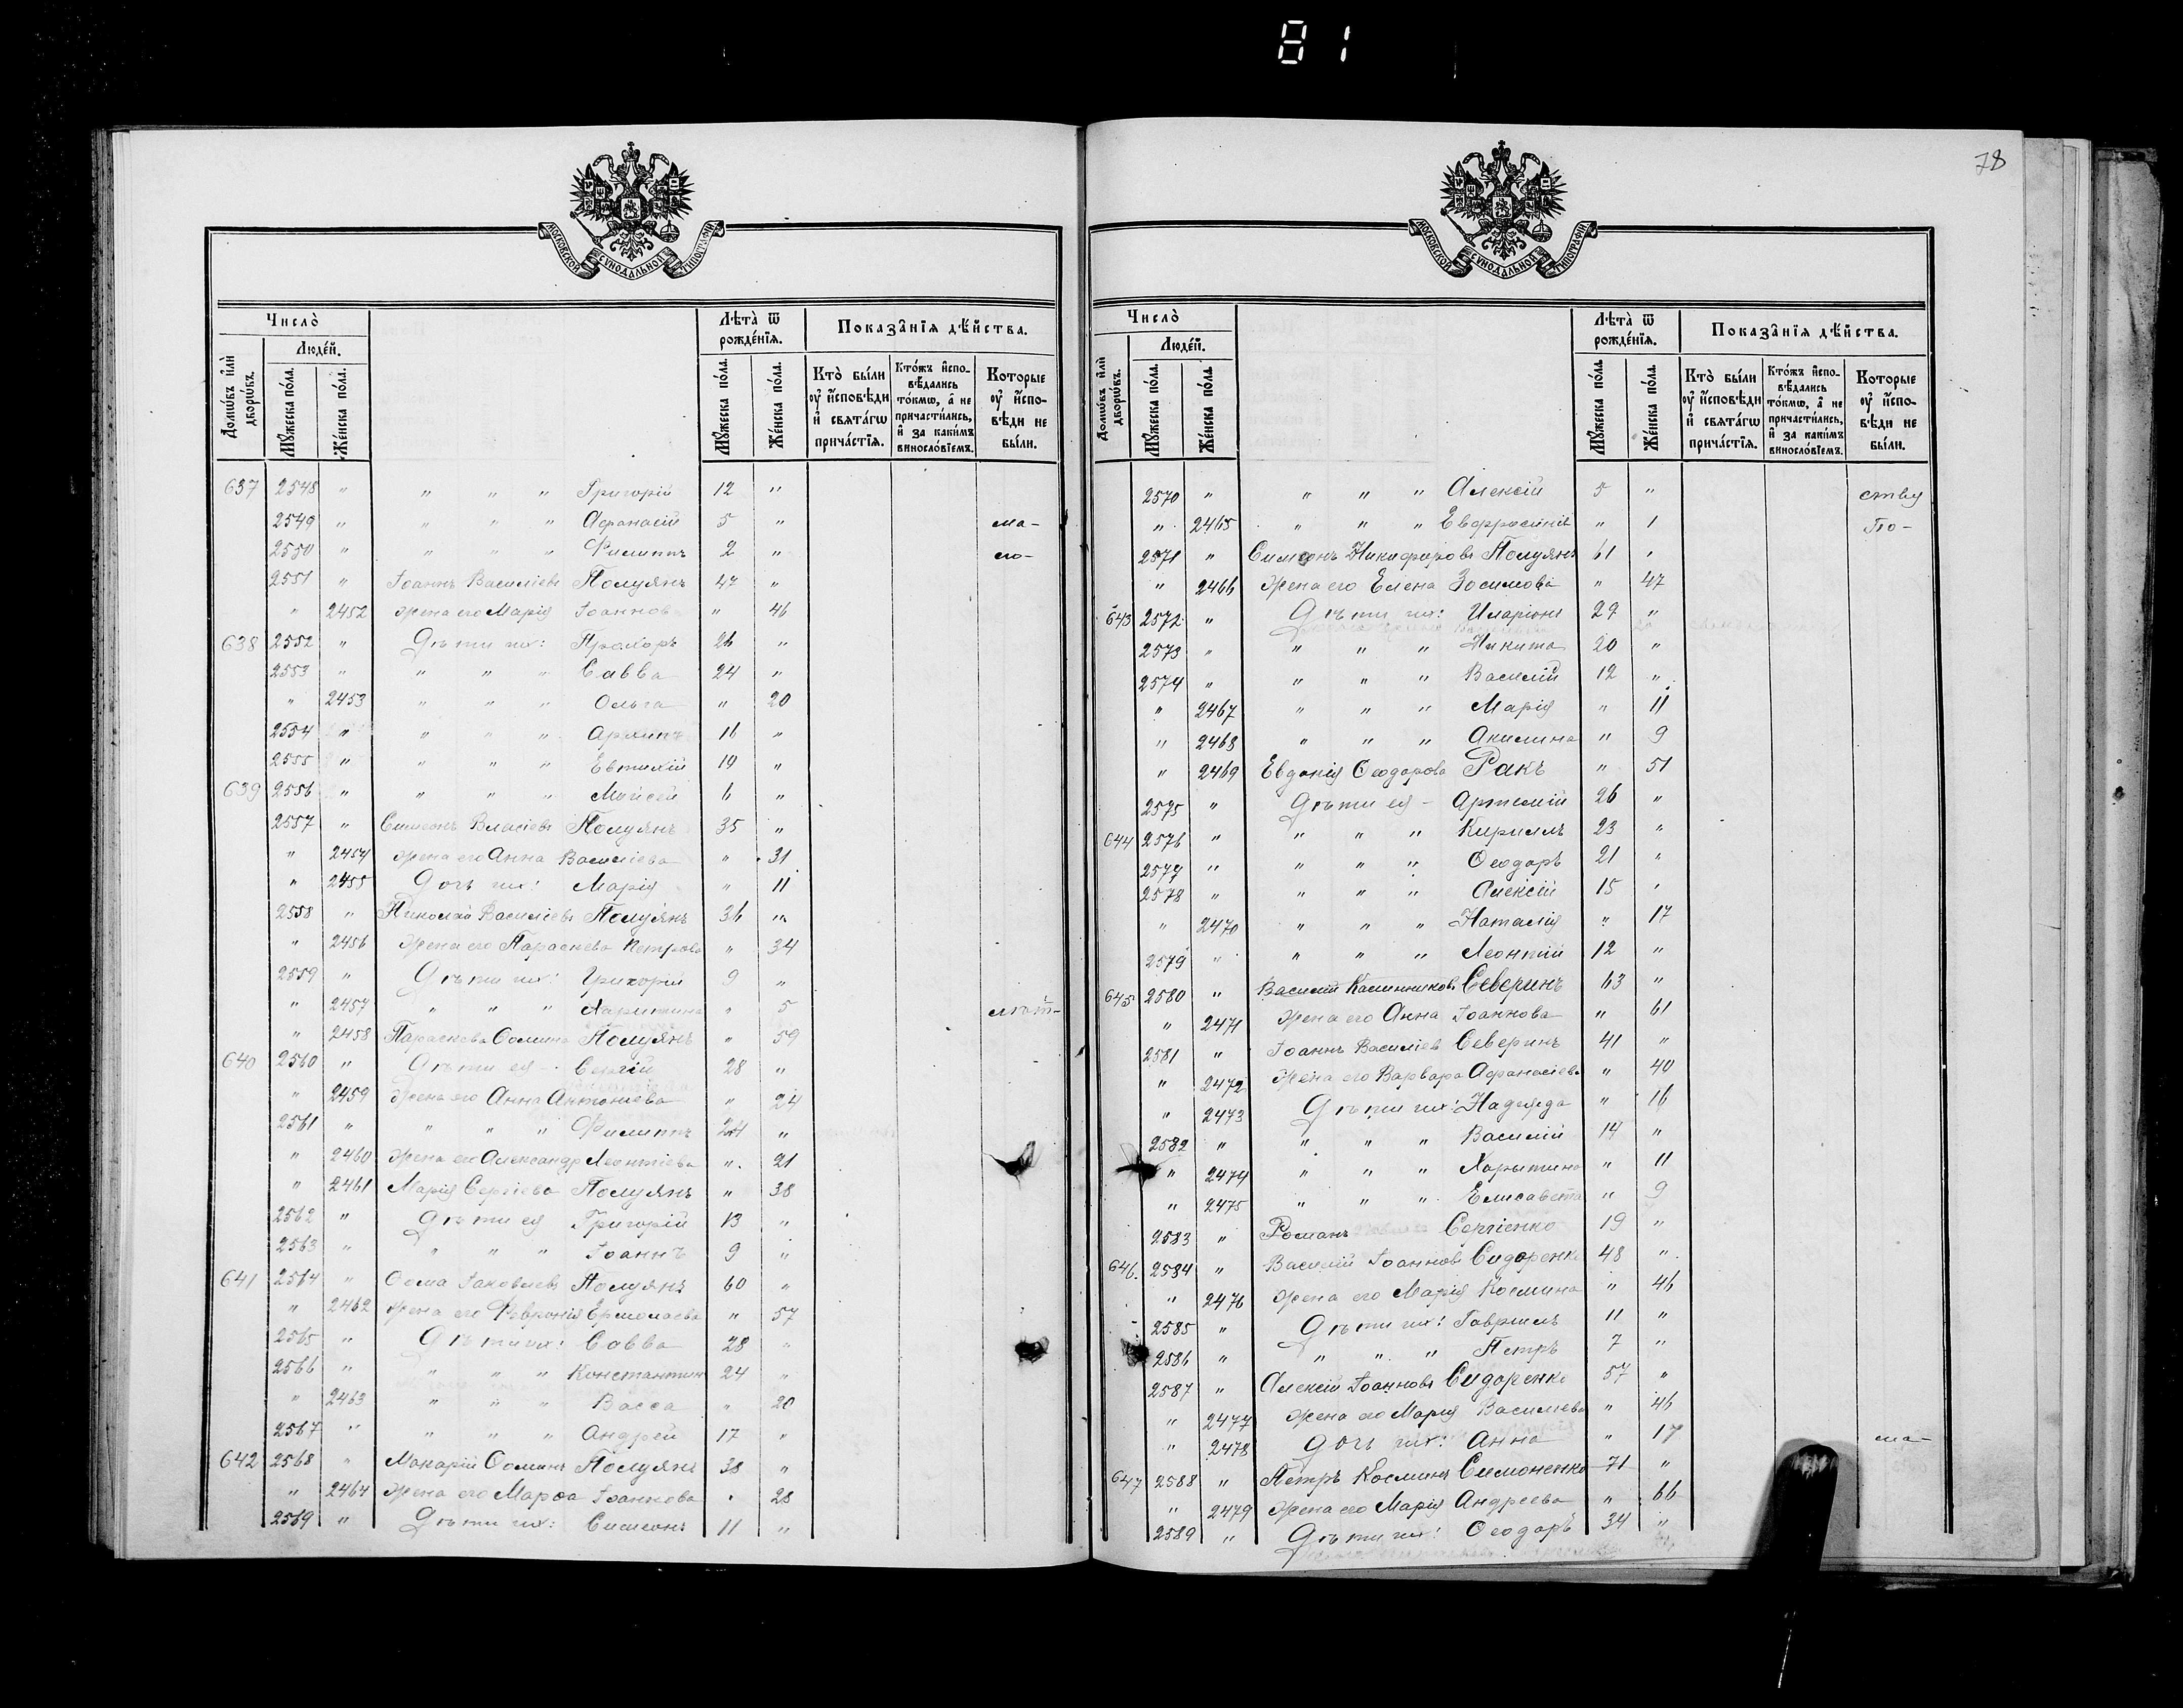 81
78
МОСКОВСКОЙ СѴНОДАЛЬНОЙ ТИПОГРАФІИ
Число̀
Людéй.
Домѡ́въ и҆лѝ дворѡ́въ.
Мꙋ́жеска по́ла.
Же́нска по́ла.
Лѣта̀ ѿ рожде́нїѧ.
Мꙋ́жеска по́ла.
Же́нска по́ла.
Показа̑нїѧ дѣ́йства.
Кто̀ бы́ли ᲂу҆ и҆́сповѣди и҆ свѧта́гѡ прича́стїѧ.
Кто́жъ и҆спо- вѣ́дались то́кмѡ, а҆ не причасти́лись, и҆ за каки́мъ винослóвїемъ.
Которые ᲂу҆ и҆спо- вѣди не бы́ли.
637 2548 " " " " Григорій 12 "
2549 " " " " Афанасій 5 " ма-
2550 " " " " Филиппъ 2 " ло-
2551 " Іоаннъ Василіевъ Полуянъ 47 "
" 2452 Жена его Марія Іоаннова " 46
638 2552 " Дѣти ихъ: Прохоръ 26 "
2553 " " " " Савва 24 "
" 2453 " " " Ольга " 20
2554 " " " " Архипъ 16 "
2555 " " " " Евтихій 19 "
639 2556 " " " " Моисей 6 "
2557 " Симеонъ Власіевъ Полуянъ 35 "
" 2454 Жена его Анна Василіева " 31
" 2455 Дочь ихъ: Марія " 11
2558 " Николай Василіевъ Полуянъ 36 "
" 2456 Жена его Параскева Петрова " 34
2559 " Дѣти ихъ: Григорій 9 "
" 2457 " " " Харитина " 5 лѣт-
" 2458 Параскева Ѳомина Полуянъ " 59
640 2560 " Дѣти ея - Сергій 28 "
" 2459 Жена его Анна Антоніева " 24
2561 " " " " Филиппъ 24 "
" 2460 Жена его Александр Леонтіева " 21
" 2461 Марія Сергіева Полуянъ " 38
2562 " Дѣти ея Григорій 13 "
2563 " " " " Іоаннъ 9 "
641 2564 " Ѳома Іаковлевъ Полуянъ 60 "
" 2462 Жена его Февронія Ермолаева " 57
2565 " Дѣти ихъ: Савва 28 "
2566 " " " " Константин 24 "
" 2463 " " " Васса " 20
2567 " " " " Андрей 17 "
642 2568 " Макарій Ѳоминъ Полуянъ 38 "
" 2464 Жена его Марѳа Іоаннова " 28
2569 " Дѣти ихъ: Симеонъ 11 "
МОСКОВСКОЙ СѴНОДАЛЬНОЙ ТИПОГРАФІИ
Число̀
Людéй.
Домѡ́въ и҆лѝ дворѡ́въ.
Мꙋ́жеска по́ла.
Же́нска по́ла.
Лѣта̀ ѿ рожде́нїѧ.
Мꙋ́жеска по́ла.
Же́нска по́ла.
Показа̑нїѧ дѣ́йства.
Кто̀ бы́ли ᲂу҆ и҆́сповѣди и҆ свѧта́гѡ прича́стїѧ.
Кто́жъ и҆спо- вѣ́дались то́кмѡ, а҆ не причасти́лись, и҆ за каки́мъ винослóвїемъ.
Которые ᲂу҆ и҆спо- вѣди не бы́ли.
2570 " " " " Алексій 5 " ству
" 2465 " " " Евфросинія " 1 По-
2571 " Симеонъ Никифоровъ Полуянъ 61 "
" 2466 Жена его Елена Зосимова " 47
643 2572 " Дѣти ихъ: Иларіонъ 29 "
2573 " " " " Никита 20 "
2574 " " " " Василій 12 "
" 2467 " " " Марія " 11
" 2468 " " " Акилина " 9
" 2469 Евдокія Ѳеодорова Ракъ " 51
2575 " Дѣти ея - Артемій 26 "
644 2576 " " " " Кириллъ 23 "
2577 " " " " Ѳеодоръ 21 "
2578 " " " " Алексій 15 "
" 2470 " " " Наталія " 17
2579 " " " " Леонтій 12 "
645 2580 " Василій Каллинниковъ Северинъ 63 "
" 2471 Жена его Анна Іоаннова " 61
2581 " Іоаннъ Василіев Северинъ 41 "
" 2472 Жена его Варвара Афанасіева " 40
" 2473 Дѣти ихъ: Надежда " 16
2582 " " " " Василій 14 "
" 2474 " " " Харитина " 11
" 2475 " " " Елисавета " 9
2583 " Романъ Сергіенко 19 "
646 2584 " Василій Іоанновъ Сидоренко 48 "
" 2476 Жена его Марія Космина " 46
2585 " Дѣти ихъ: Гавріилъ 11 "
2586 " " " " Петръ 7 "
2587 " Алексій Іоанновъ Сидоренко 57 "
" 2477 Жена его Марія Василіева " 46
" 2478 Дочь ихъ: Анна " 17 ма-
647 2588 " Петръ Косминъ Симоненко 71 "
" 2479 Жена его Марія Андреева " 66
2589 " Дѣти ихъ: Ѳеодоръ 34 "